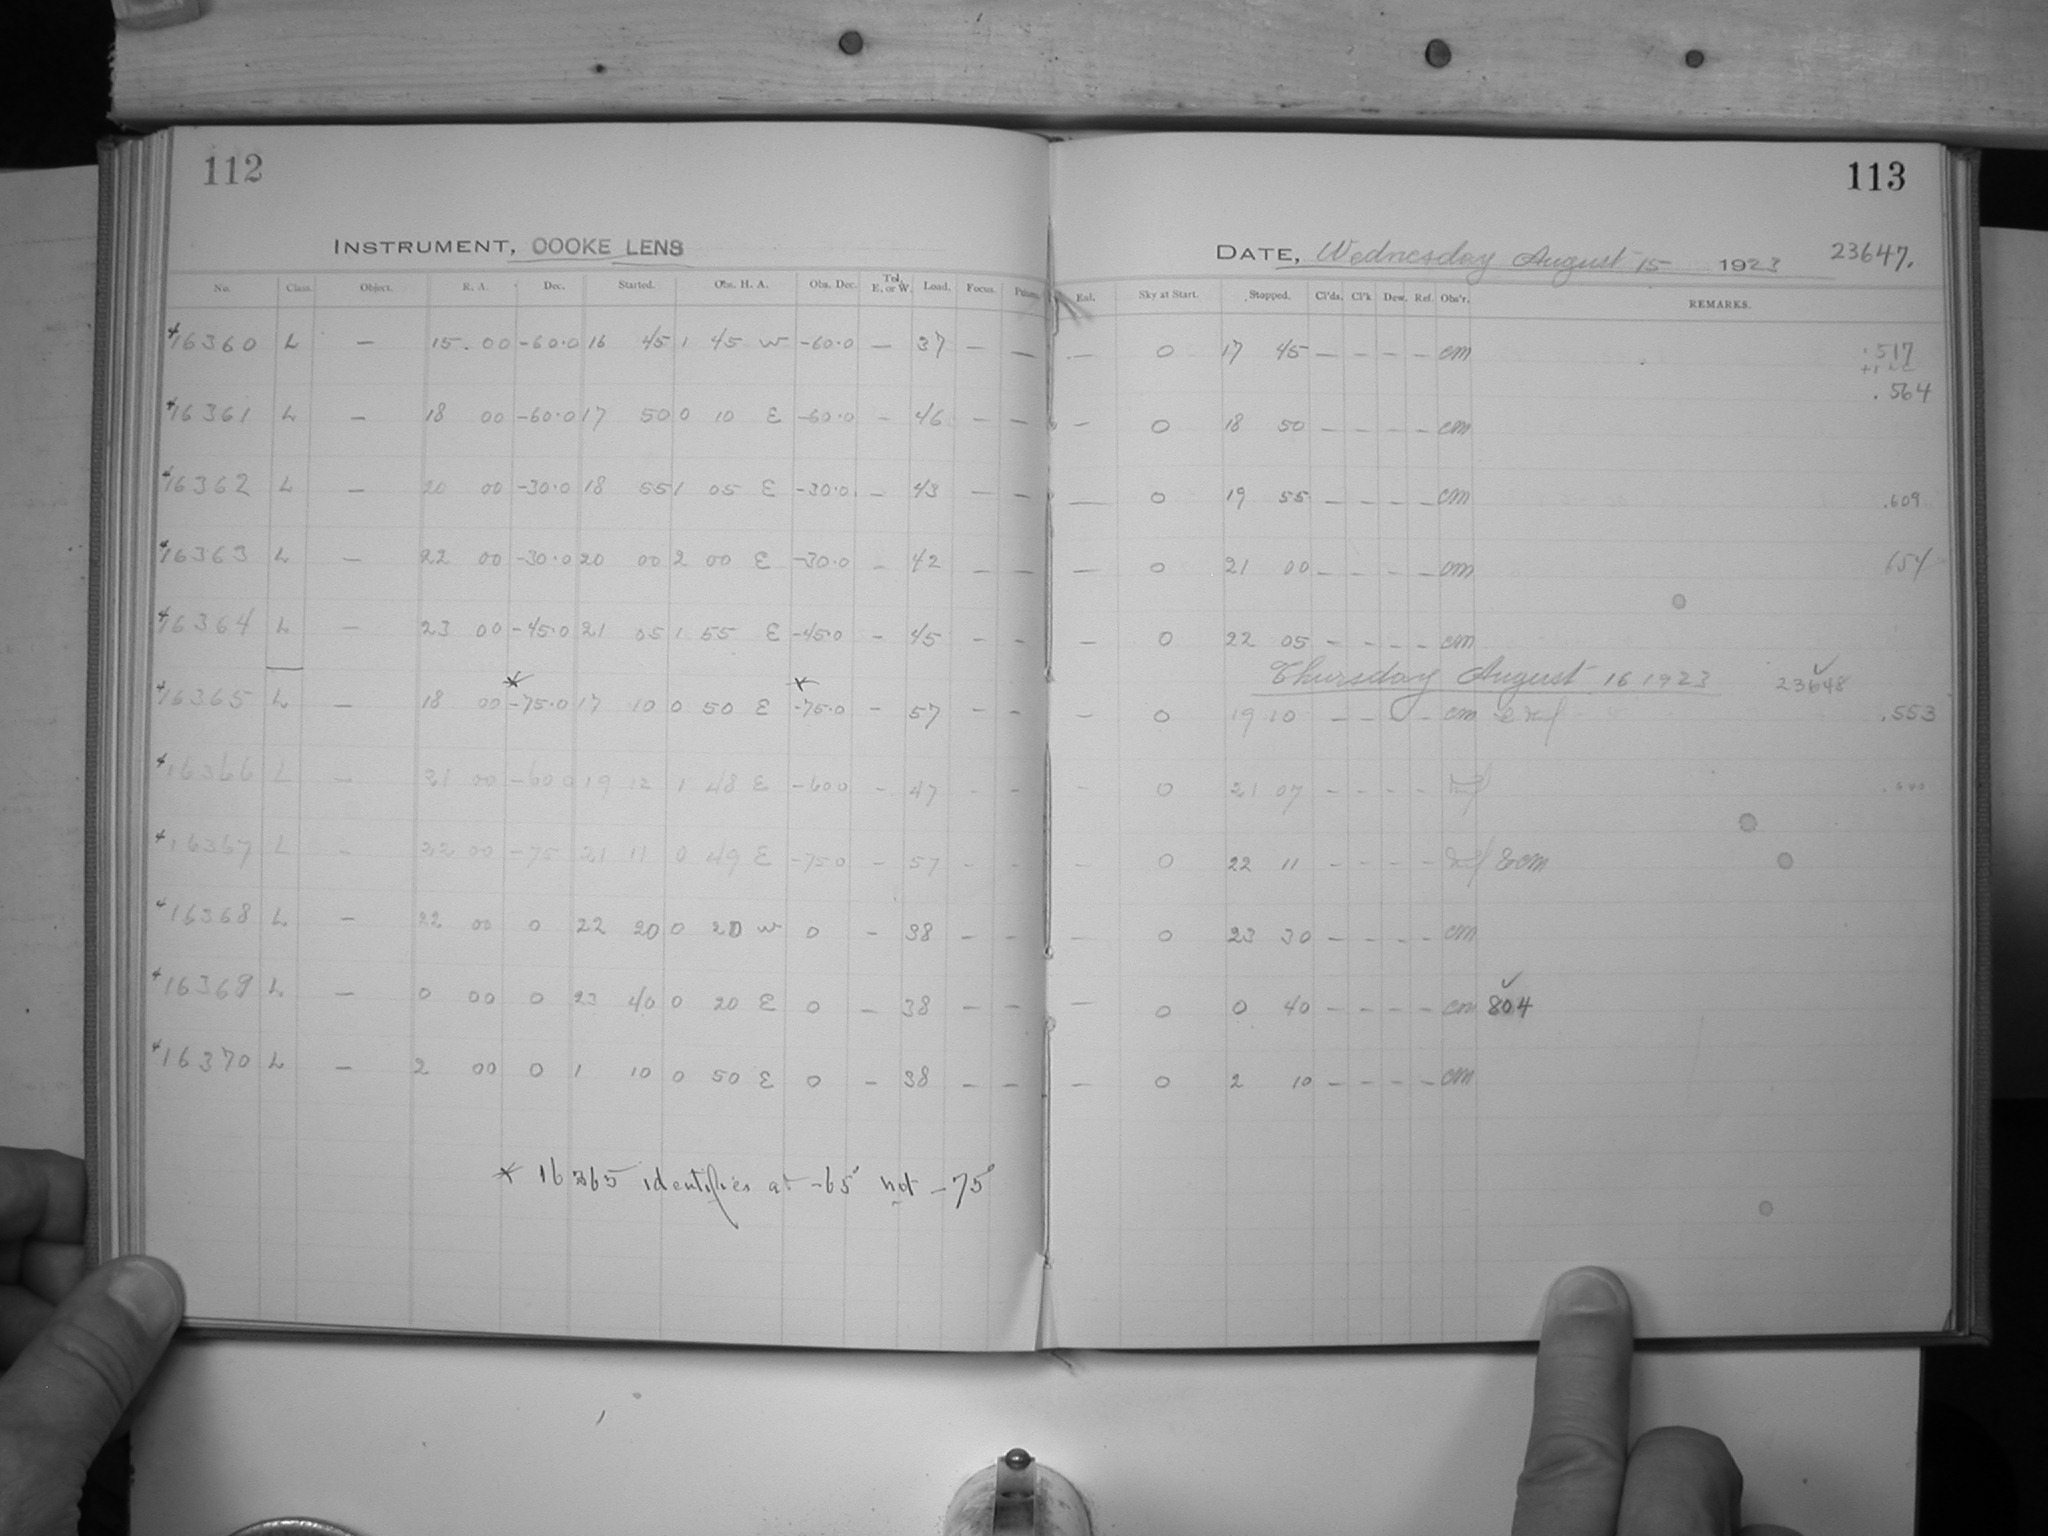 112
113
INSTRUMENT, COOKE LENS
DATE, Wednesday August 15 1923 23647.
No. Class. Object. R. A. Dec. Started. Obs. H. A. Obs. Dec. Tel. E. or W. Load. Focus. Est. Sky at Start. Stopped. Cl'ds. Cl'k Dew. Ref. Obs'r. REMARKS.
16360 L — 15.00 -60.0 16 45 1 45 W -60.0 — 37 — — — 0 17 45 — — — — cm .517
.564
16361 L — 18 00 -60.0 17 50 0 10 E -60.0 — 46 — — — 0 18 50 — — — — cm
16362 L — 20 00 -30.0 18 55 1 05 E -30.0 — 43 — — — 0 19 55 — — — — cm .609
16363 L — 22 00 -30.0 20 00 2 00 E -30.0 — 42 — — — 0 21 00 — — — — cm 654
16364 L — 23 00 -45.0 21 05 1 55 E -45.0 — 45 — — — 0 22 05 — — — — cm
Thursday August 16 1923 23648
16365 L — 18 00 * -75.0 17 10 0 50 E * -75.0 — 57 — — — 0 19 10 — — — — cm .553
16366 L — 21 00 -60 0 19 12 1 48 E -60 0 — 47 — — — 0 21 07 — — — —
16367 L — 22 00 -75 21 11 0 49 E -75 0 — 57 — — — 0 22 11 — — — — & cm
16368 L — 22 00 0 22 20 0 20 W 0 — 38 — — — 0 23 30 — — — — cm
16369 L — 0 00 0 23 40 0 20 E 0 — 38 — — — 0 0 40 — — — — cm 804
16370 L — 2 00 0 1 10 0 50 E 0 — 38 — — — 0 2 10 — — — — cm
* 16365 identifies at -65° not -75°